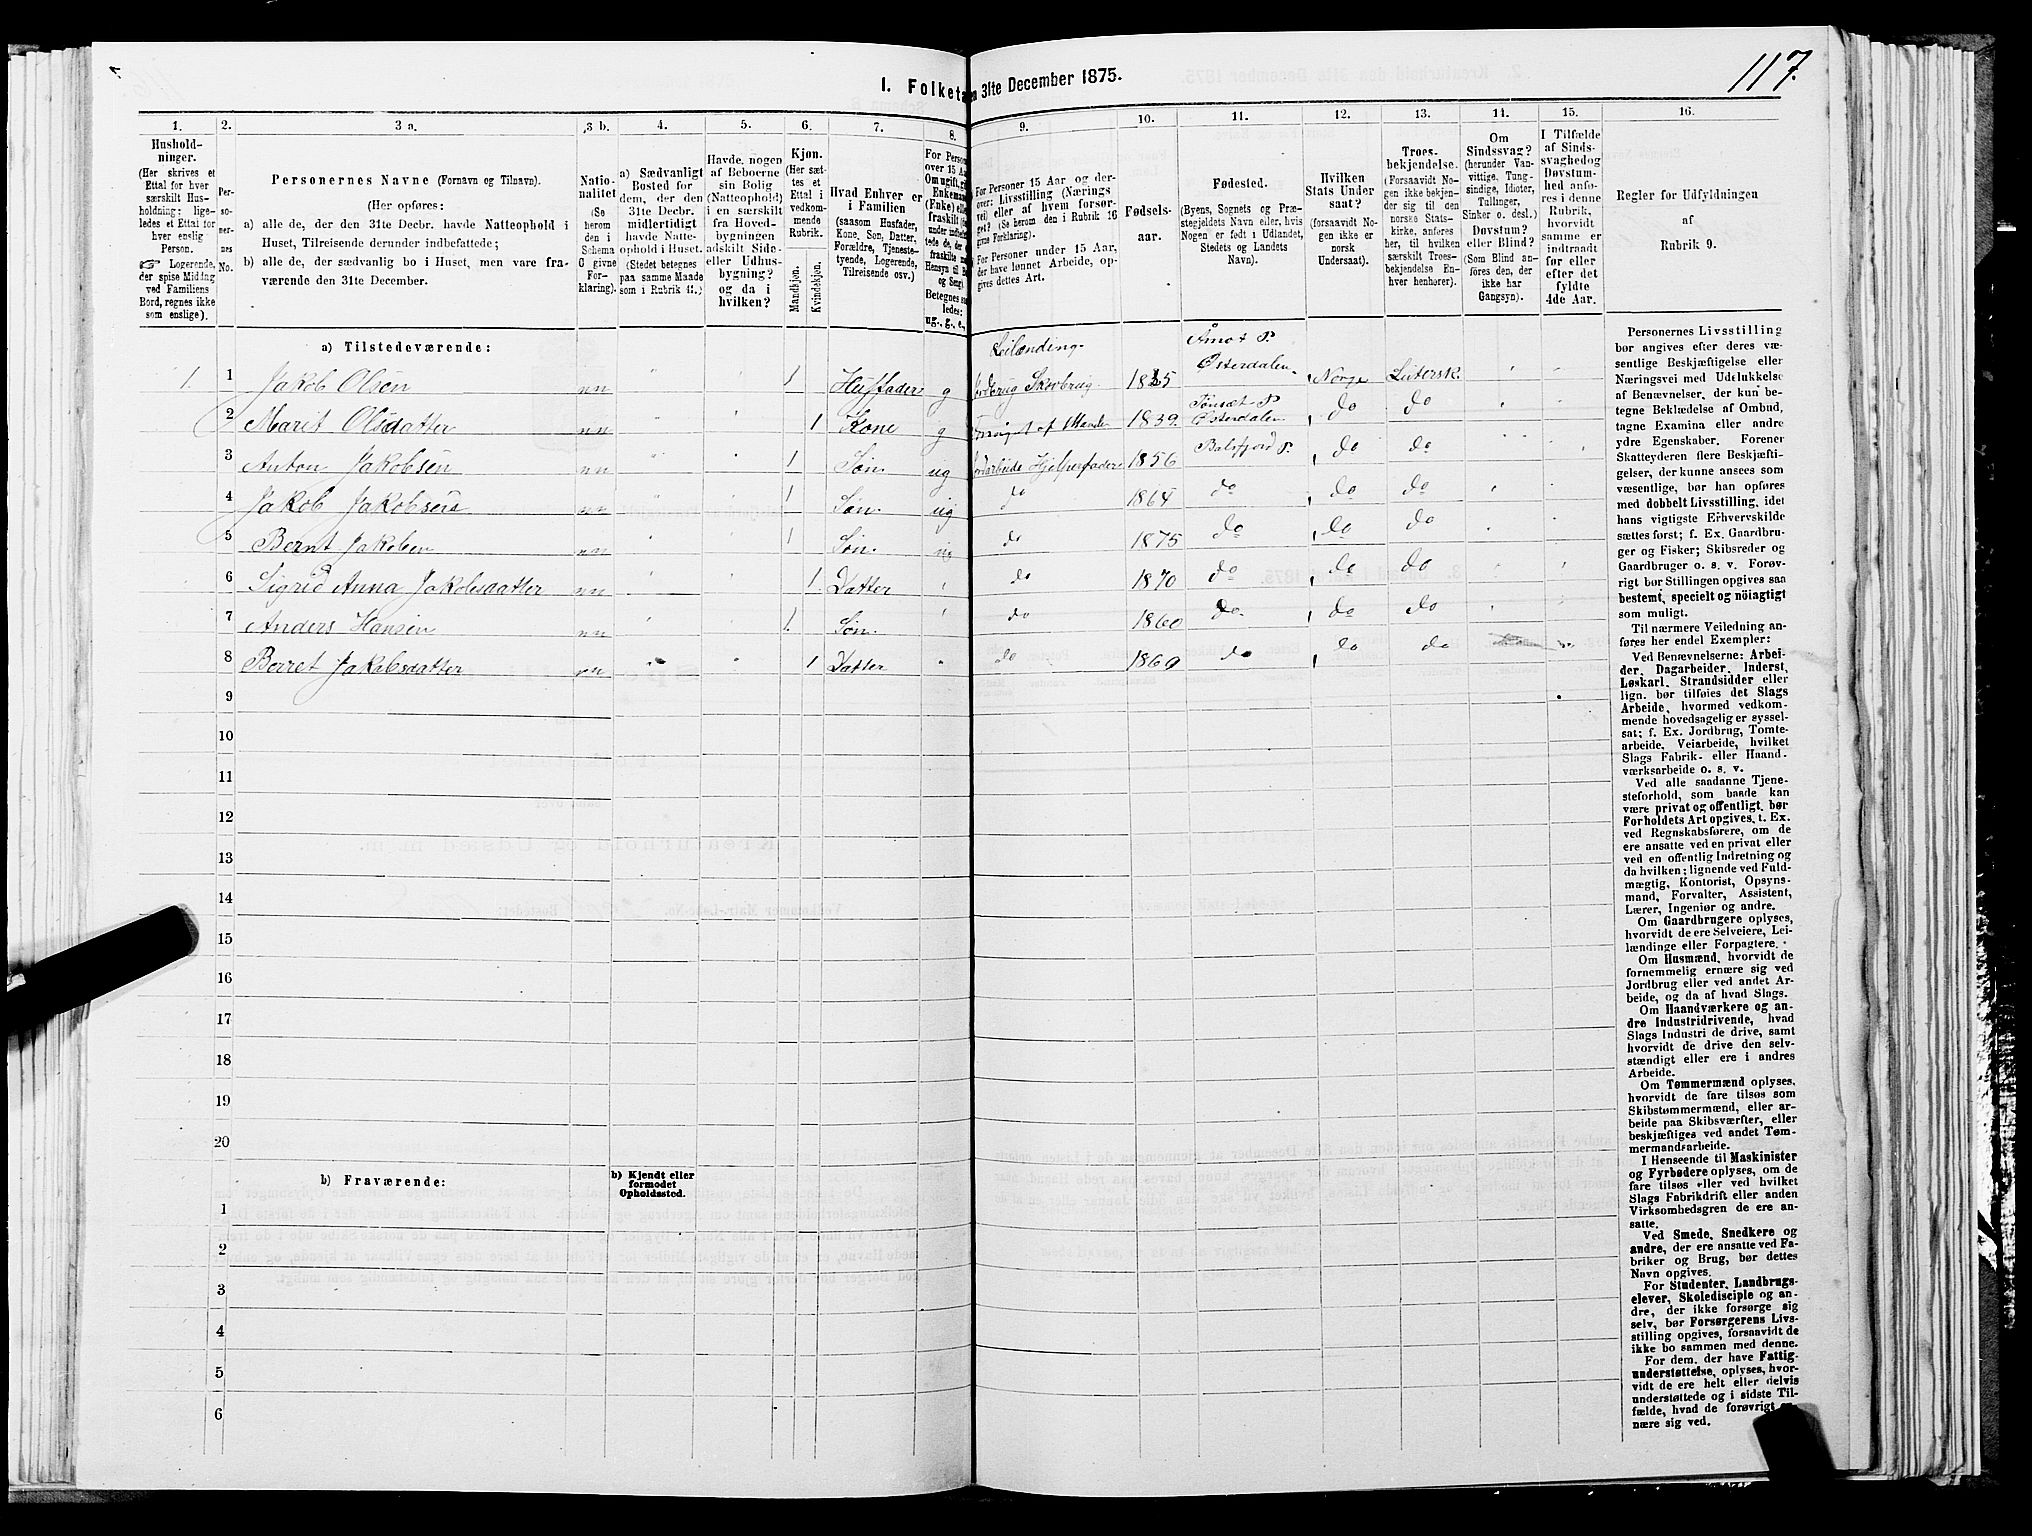 117.
I. Folketa
n 31te December 1875.
1.
2.
3 a.
3 b.
4.
5.
6.
7.
8.
9.
10.
11.
12.
13.
14.
15.
16.
Hushold-
ninger.
(Her skrives et
Ettal for hver
særskilt Hus-
holdning; lige-
ledes et Ettal for
hver enslig
Person.
☞ Logerende,
der spise Middag
ved Familiens
Bord, regnes ikke
som enslige).
Per-
so-
ner-
nes
No.
Personernes Navne (Fornavn og Tilnavn).
(Her opføres:
a) alle de, der den 31te Decbr. havde Natteophold i
Huset, Tilreisende derunder indbefattede;
b) alle de, der sædvanlig bo i Huset, men vare fra-
værende den 31te December.
Natio-
nalitet
(Se
herom
den i
Schema
6 givne
For-
klaring).
a) Sædvanligt
Bosted for
dem, der den
31te Decbr.
midlertidigt
havde Natte-
ophold i Huset.
(Stedet betegnes
paa samme Maade
som i Rubrik 11.)
Havde nogen
af Beboerne
sin Bolig
(Natteophold)
i en særskilt
fra Hoved-
bygningen
adskilt Side-
eller Udhus-
bygning?
og da i
hvilken?
Kjøn.
(Her sæt-
tes et
Ettal i
vedkom-
mende
Rubrik.
Mandkjøn.
Kvindekjøn.
Hvad Enhver er
i Familien
(saasom Husfader,
Kone, Søn, Datter,
Forældre, Tjeneste-
tyende, Logerende,
Tilreisende osv.)
For Person
over 15 Aar
Om ugift, gi
Enkeman
(Enke) elle
fraskilt
Betegnes sa
ledes:
ug., g., e.,
For Personer 15 Aar og der-
over: Livsstilling (Nærings
vei) eller af hvem forsør-
get? (Se herom den i Rubrik 16
givne Forklaring).
For Personer under 15 Aar,
der have lønnet Arbeide, op-
gives dettes Art.
Fødsels-
aar.
Fødested.
(Byens, Sognets og Præ-
stegjeldets Navn eller, hvis
Nogen er født i Udlandet,
Stedets og Landets
Navn).
Hvilken
Stats Under
saat?
(forsaavidt No-
gen ikke er
norsk
Undersaat).
Troes-
bekjendelse.
(Forsaavidt No-
gen ikke bekjen-
der sig til den
norske Stats-
kirke, anføres
her, til hvilken
særskilt Troes-
bekjendelse En-
hver henhører).
Om
Sindssvag?
(herunder Van-
vittige, Tung-
sindige, Idioter,
Tullinger,
Sinker o. desl.)
Døvstum?
eller Blind?
(Som Blind an-
føres den, der
ikke har
Gangsyn).
I Tilfælde
af Sinds-
svaghed og
Døvstum-
hed anfø-
res i denne
Rubrik,
hvorvidt
samme er
indtraadt
før eller
efter det
fyldte
4de Aar.
Regler for Udfyldningen
af
Rubrik 9.
a) Tilstedeværende:
1. 1 Jakob Olsen nn " 1 Husfader g Leilænding. Jordbrug Skovbrug. 1825 Åmot P. Østerdalen. Norge Lutersk.
2 Marit Olsdatter nn " " 1 Kone g Forsørget af Manden 1839. Tønset P. Østerdalen do do
3 Anton Jakobsen nn " " 1 Søn. ug Jordarbeide Hjelper fader 1856 Balsfjord P. do do
4 Jakob Jakobsen nn " " 1 Søn. ug do 1864 do do do
5 Bernt Jakobsen nn " " 1 Søn. ug do 1875 do do do
6 Sigrid Anna Jakobsdatter nn " " 1 Datter do 1870 do do do
7 Anders Hansen nn " " 1 Søn. do 1860 do. do do
8 Berret Jakobsdatter nn " " 1 Datter " do 1869 do do do
9
10
11
12
13
14
15
16
17
18
19
20
b) Fraværende:
b) Kjendt eller
formodet
Opholdssted.
1
2
3
4
5
6
Personernes Livsstilling
bør angives efter deres væ-
sentlige Beskjæftigelse eller
Næringsvei med Udelukkelse
af Benævnelser, der kun be-
tegne Beklædelse af Ombud,
tagne Examina eller andre
ydre Egenskaber. Forener
Skatteyderen flere Beskjæfti-
gelser, der kunne ansees som
væsentlige, bør han opføres
med dobbelt Livsstilling, idet
hans vigtigste Erhvervskilde
sættes først; f. Ex. Gaardbru-
ger og Fisker; Skibsreder og
Gaardbruger o. s. v. Forøv-
rigt bør Stillingen opgives saa
bestemt, specielt og nöiagtigt
som muligt.
Til nærmere Veiledning an-
føres her endel Exempler:
Ved Benævnelserne: Arbei-
der, Dagarbeider, Inderst,
Løskarl, Strandsidder eller
lign. bør tilføies det Slags
Arbeide, hvormed vedkom-
mende hovedsagelig er syssel-
sat; f. Ex. Jordbrug, Tomte-
arbeide, Veiarbeide, hvilket
Slags Fabrik- eller Haand
værksarbeide o. s. v.
Ved alle saadanne Tjene-
steforhold, som baade kan
være privat og offentligt, bør
Forholdets Art opgives, t. Ex.
ved Regnskabsførere, om de
ere ansatte ved en privat eller
ved en offentlig Indretning og
da hvilken; lignende ved Fuld-
mægtig, Kontorist, Opsyns-
mand, Forvalter, Assistent,
Lærer, Ingeniør og andre.
Om Gaardbrugere oplyses,
hvorvidt de ere Selveiere, Lei-
lændinge eller Forpagtere.
Om Husmænd, hvorvidt de
fornemmelig ernære sig ved
Jordbrug eller ved andet Ar-
beide, og da af hvad Slags.
Om Haandværkere og an-
dre Industridrivende, hvad
Slags Industri de drive, samt
hvorvidt de drive den selv-
stændigt eller ere i andres
Arbeide.
Om Tømmermænd oplyses,
hvorvidt de fare tilsøs som
Skibstømmermænd, eller ar-
beide paa Skibsværfter, eller
beskjæftiges ved andet Tøm-
mermandsarbeide.
I Henseende til Maskinister
og Fyrbødere oplyses, om de
fare tilsøs eller ved hvilket
Slags Fabrikdrift eller anden
Virksomhedsgren de ere an-
satte.
Ved Smede, Snedkere og
andre, der ere ansatte ved Fa-
briker og Brug, bør dettes
Navn opgives.
For Studenter, Landbrugs-
elever, Skoledisciple og an-
dre, der ikke forsørge sig
selv, bør Forsørgerens Livs-
stilling opgives, forsaavidt de
ikke bo sammen med denne.
For dem, der have Fattig-
understøttelse, oplyses, hvor-
vidt de ere helt eller delvis
understøttede og i sidste Til-
fælde, hvad de forøvrigt er-
nære sig ved.